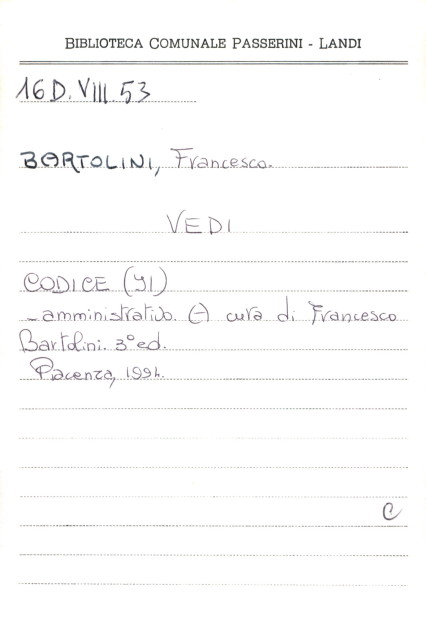 BIBLIOTECA COMUNALE PASSERINI - LANDI
16 D. VIII. 53
BARTOLINI, Francesco.
VEDI
CODICE (Il)
- amministrativo. (-) cura di Francesco
Bartolini. 3° ed.
Piacenza, 1994.
C